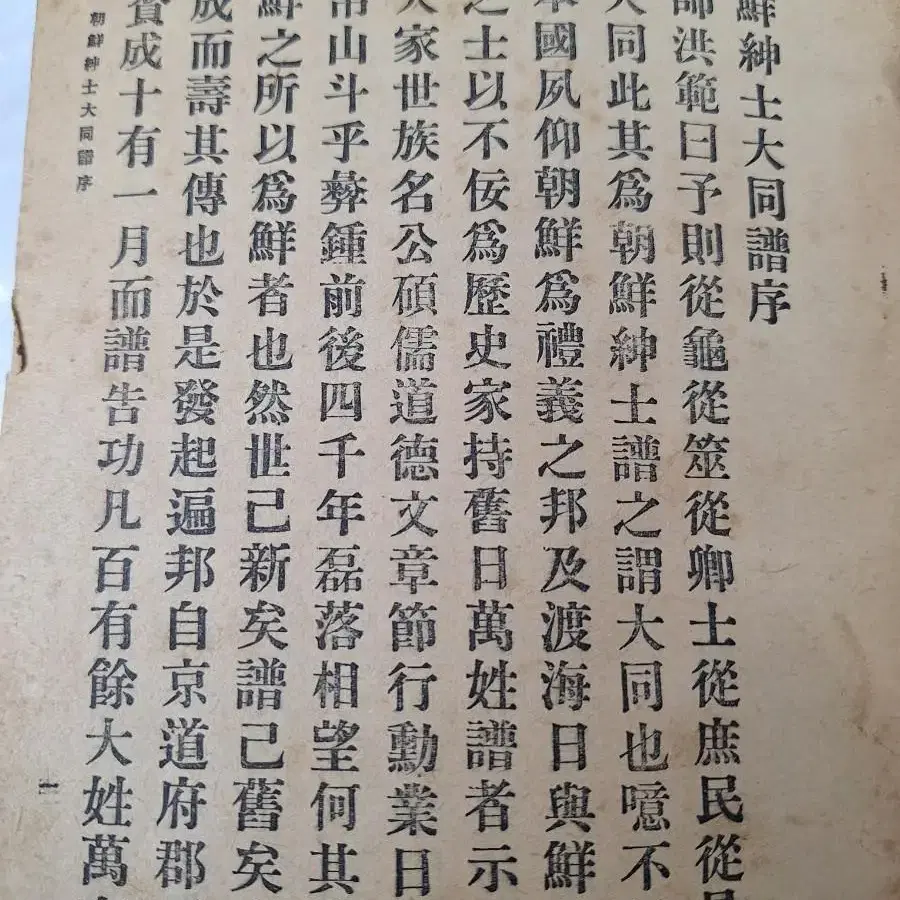 鮮紳士大同譜序
師洪範曰予則從龜從筮從卿士從庶民從
大同此其爲朝鮮紳士譜之謂大同也噫不
本國夙仰朝鮮爲禮義之邦及渡海日與鮮
之士以不佞爲歷史家持舊日萬姓譜者示
大家世族名公碩儒道德文章節行勳業日
山斗乎彝鍾前後四千年磊落相望何其
鮮之所以爲鮮者也然世已新矣譜已舊矣
成而壽其傳也於是發起遍邦自京道府郡
成十有一月而譜告功凡百有餘大姓萬
朝鮮紳士大同譜序
一